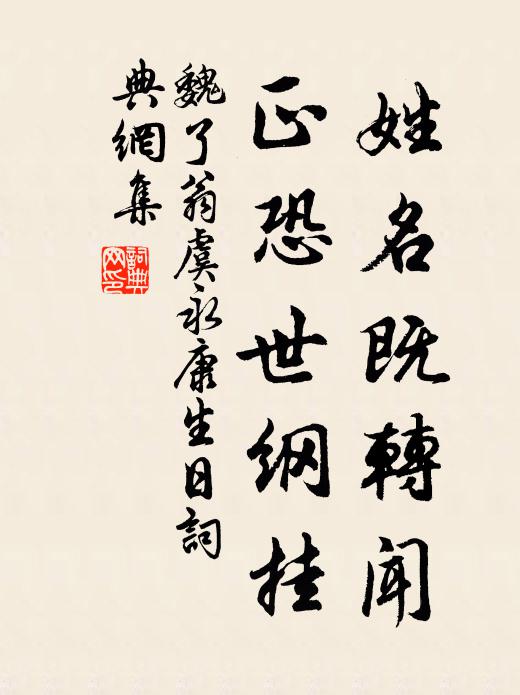 姓名既轉聞
正恐世綱挂
魏了翁虞永康生日詞
典網集
詞典
网印